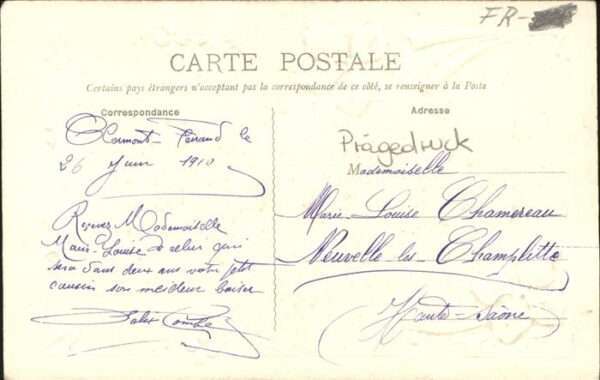 FR-
CARTE POSTALE
Certains pays étrangers n'acceptant pas la correspondance de ce côté, se renseigner à la Poste
Correspondance
Clermont-Ferrand le
26 Juin 1910
Recevez Mademoiselle
Marie-Louise de celui qui
sera dans deux ans votre petit
cousin son meilleur baiser
Adresse
Prägedruck
Mademoiselle
Marie-Louise Chamereau
Neuvelle les Champlitte
Haute-Saône